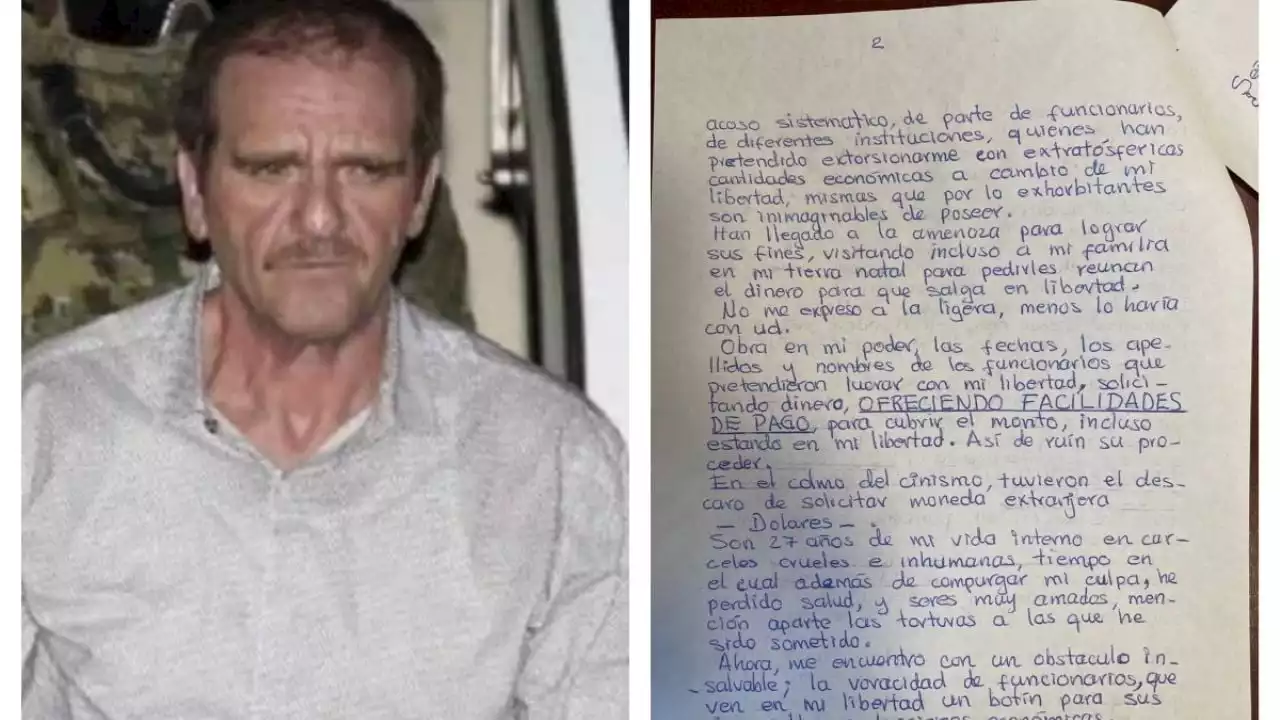 2
acoso sistematico, de parte de funcionarios,
de diferentes instituciones, quienes han
pretendido extorsionarme con extratósfericas
cantidades económicas a cambio de mi
libertad, mismas que por lo exhorbitantes
son inimaginables de poseer.
Han llegado a la amenaza para lograr
sus fines, visitando incluso a mi familia
en mi tierra natal para pedirles reunan
el dinero para que salga en libertad.
No me expreso a la ligera, menos lo havia
con ud.
Obra en mi poder, las fechas, los ape-
llidos y nombres de los funcionarios que
pretendieron lucrar con mi libertad, solici-
tando dinero, OFRECIENDO FACILIDADES
DE PAGO, para cubrir el monto, incluso
estando en mi libertad. Así de ruín su pro-
ceder.
En el colmo del cinismo, tuvieron el des-
caro de solicitar moneda extranjera
- Dolares -.
Son 27 años de mi vida interno en car-
celes crueles e inhumanas, tiempo en
el cual además de compurgar mi culpa, he
perdido salud, y seres muy amados, men-
ción aparte las torturas a las que he
sido sometido.
Ahora, me encuentro con un obstaculo in-
salvable; la voracidad de funcionarios, que
ven en mi libertad un botín para sus